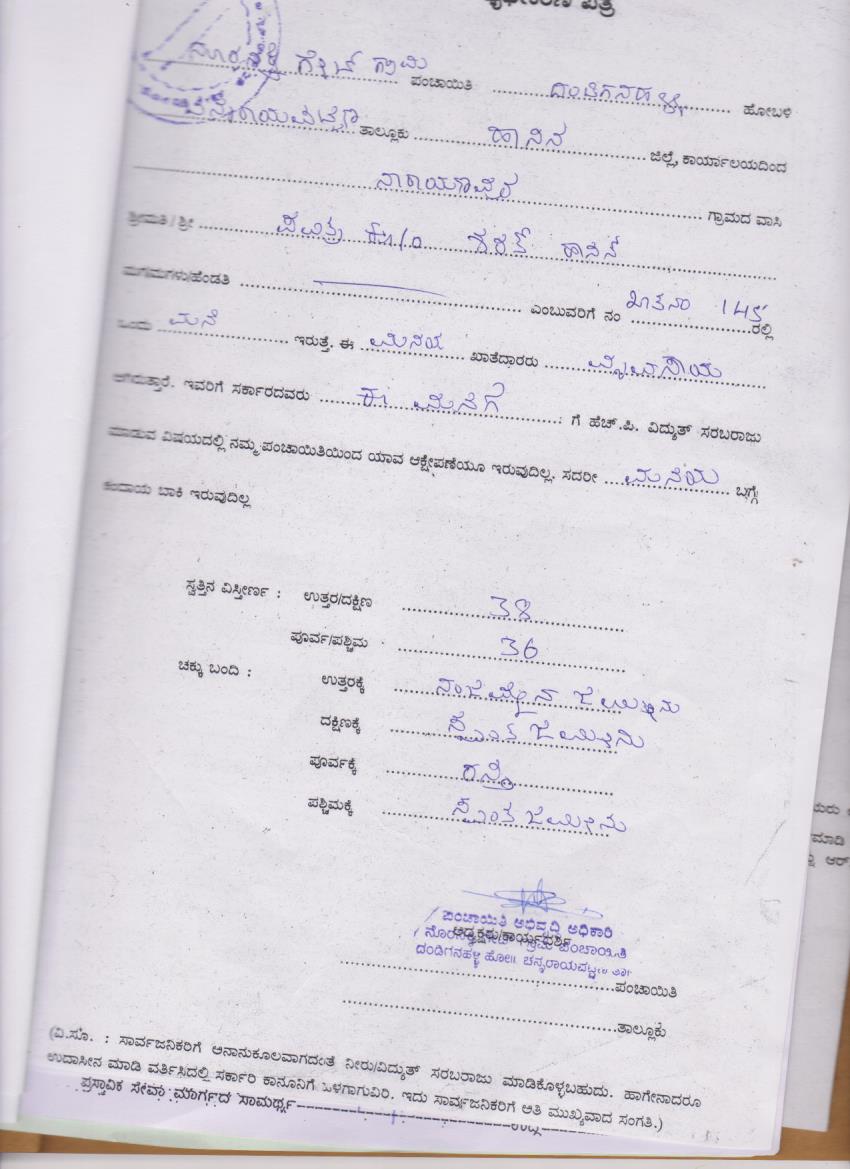 ಪತ್ರ
ಗೇಟ್ ಗ್ರಾಮ ಪಂಚಾಯಿತಿ ದಂಡಿಗನಹಳ್ಳಿ ಹೋಬಳಿ
ಚನ್ನರಾಯಪಟ್ಟಣ ತಾಲ್ಲೂಕು ಹಾಸನ ಜಿಲ್ಲೆ, ಕಾರ್ಯಾಲಯದಿಂದ
ನಾರಾಯಣಪುರ ಗ್ರಾಮದ ವಾಸಿ
ಶ್ರೀಮತಿ / ಶ್ರೀ ಪವಿತ್ರ ಕೋಂ ಶರತ್ ಹಾಸನ್
ಮಗ/ಮಗಳು/ಹೆಂಡತಿ ಎಂಬುವರಿಗೆ ನಂ ಖಾತಾನಂ 145 ರಲ್ಲಿ
ಒಂದು ಮನೆ ಇರುತ್ತೆ. ಈ ಮನೆಯ ಖಾತೆದಾರರು
ಆಗಿರುತ್ತಾರೆ. ಇವರಿಗೆ ಸರ್ಕಾರದವರು ಈ ಮನೆಗೆ : ಗೆ ಹೆಚ್.ಪಿ. ವಿದ್ಯುತ್ ಸರಬರಾಜು
ಮಾಡುವ ವಿಷಯದಲ್ಲಿ ನಮ್ಮ ಪಂಚಾಯಿತಿಯಿಂದ ಯಾವ ಆಕ್ಷೇಪಣೆಯೂ ಇರುವುದಿಲ್ಲ. ಸದರೀ ಮನೆಯ ಬಗ್ಗೆ
ಕಂದಾಯ ಬಾಕಿ ಇರುವುದಿಲ್ಲ
ಸ್ವತ್ತಿನ ವಿಸ್ತೀರ್ಣ : ಉತ್ತರ/ದಕ್ಷಿಣ 38
ಪೂರ್ವ/ಪಶ್ಚಿಮ 36
ಚಕ್ಕು ಬಂದಿ : ಉತ್ತರಕ್ಕೆ ಜಮೀನು
ದಕ್ಷಿಣಕ್ಕೆ ಸ್ವಂತ ಜಮೀನು
ಪೂರ್ವಕ್ಕೆ ರಸ್ತೆ
ಪಶ್ಚಿಮಕ್ಕೆ ಸ್ವಂತ ಜಮೀನು
ಪಂಚಾಯಿತಿ ಅಭಿವೃದ್ಧಿ ಅಧಿಕಾರಿ
ಅಧ್ಯಕ್ಷರು/ಕಾರ್ಯದರ್ಶಿ
ಗ್ರಾಮ ಪಂಚಾಯಿತಿ
ದಂಡಿಗನಹಳ್ಳಿ ಹೋ॥ ಚನ್ನರಾಯಪಟ್ಟಣ ತಾ॥
ಪಂಚಾಯಿತಿ
ತಾಲ್ಲೂಕು
(ವಿ.ಸೂ. : ಸಾರ್ವಜನಿಕರಿಗೆ ಅನಾನುಕೂಲವಾಗದಂತೆ ನೀರು/ವಿದ್ಯುತ್ ಸರಬರಾಜು ಮಾಡಿಕೊಳ್ಳಬಹುದು. ಹಾಗೇನಾದರೂ
ಉದಾಸೀನ ಮಾಡಿ ವರ್ತಿಸಿದಲ್ಲಿ ಸರ್ಕಾರಿ ಕಾನೂನಿಗೆ ಒಳಗಾಗುವಿರಿ. ಇದು ಸಾರ್ವಜನಿಕರಿಗೆ ಅತಿ ಮುಖ್ಯವಾದ ಸಂಗತಿ.)
ಪ್ರಸ್ತಾವಿತ ಸೇವಾ ಮಾರ್ಗದ ಸಾಮರ್ಥ್ಯ